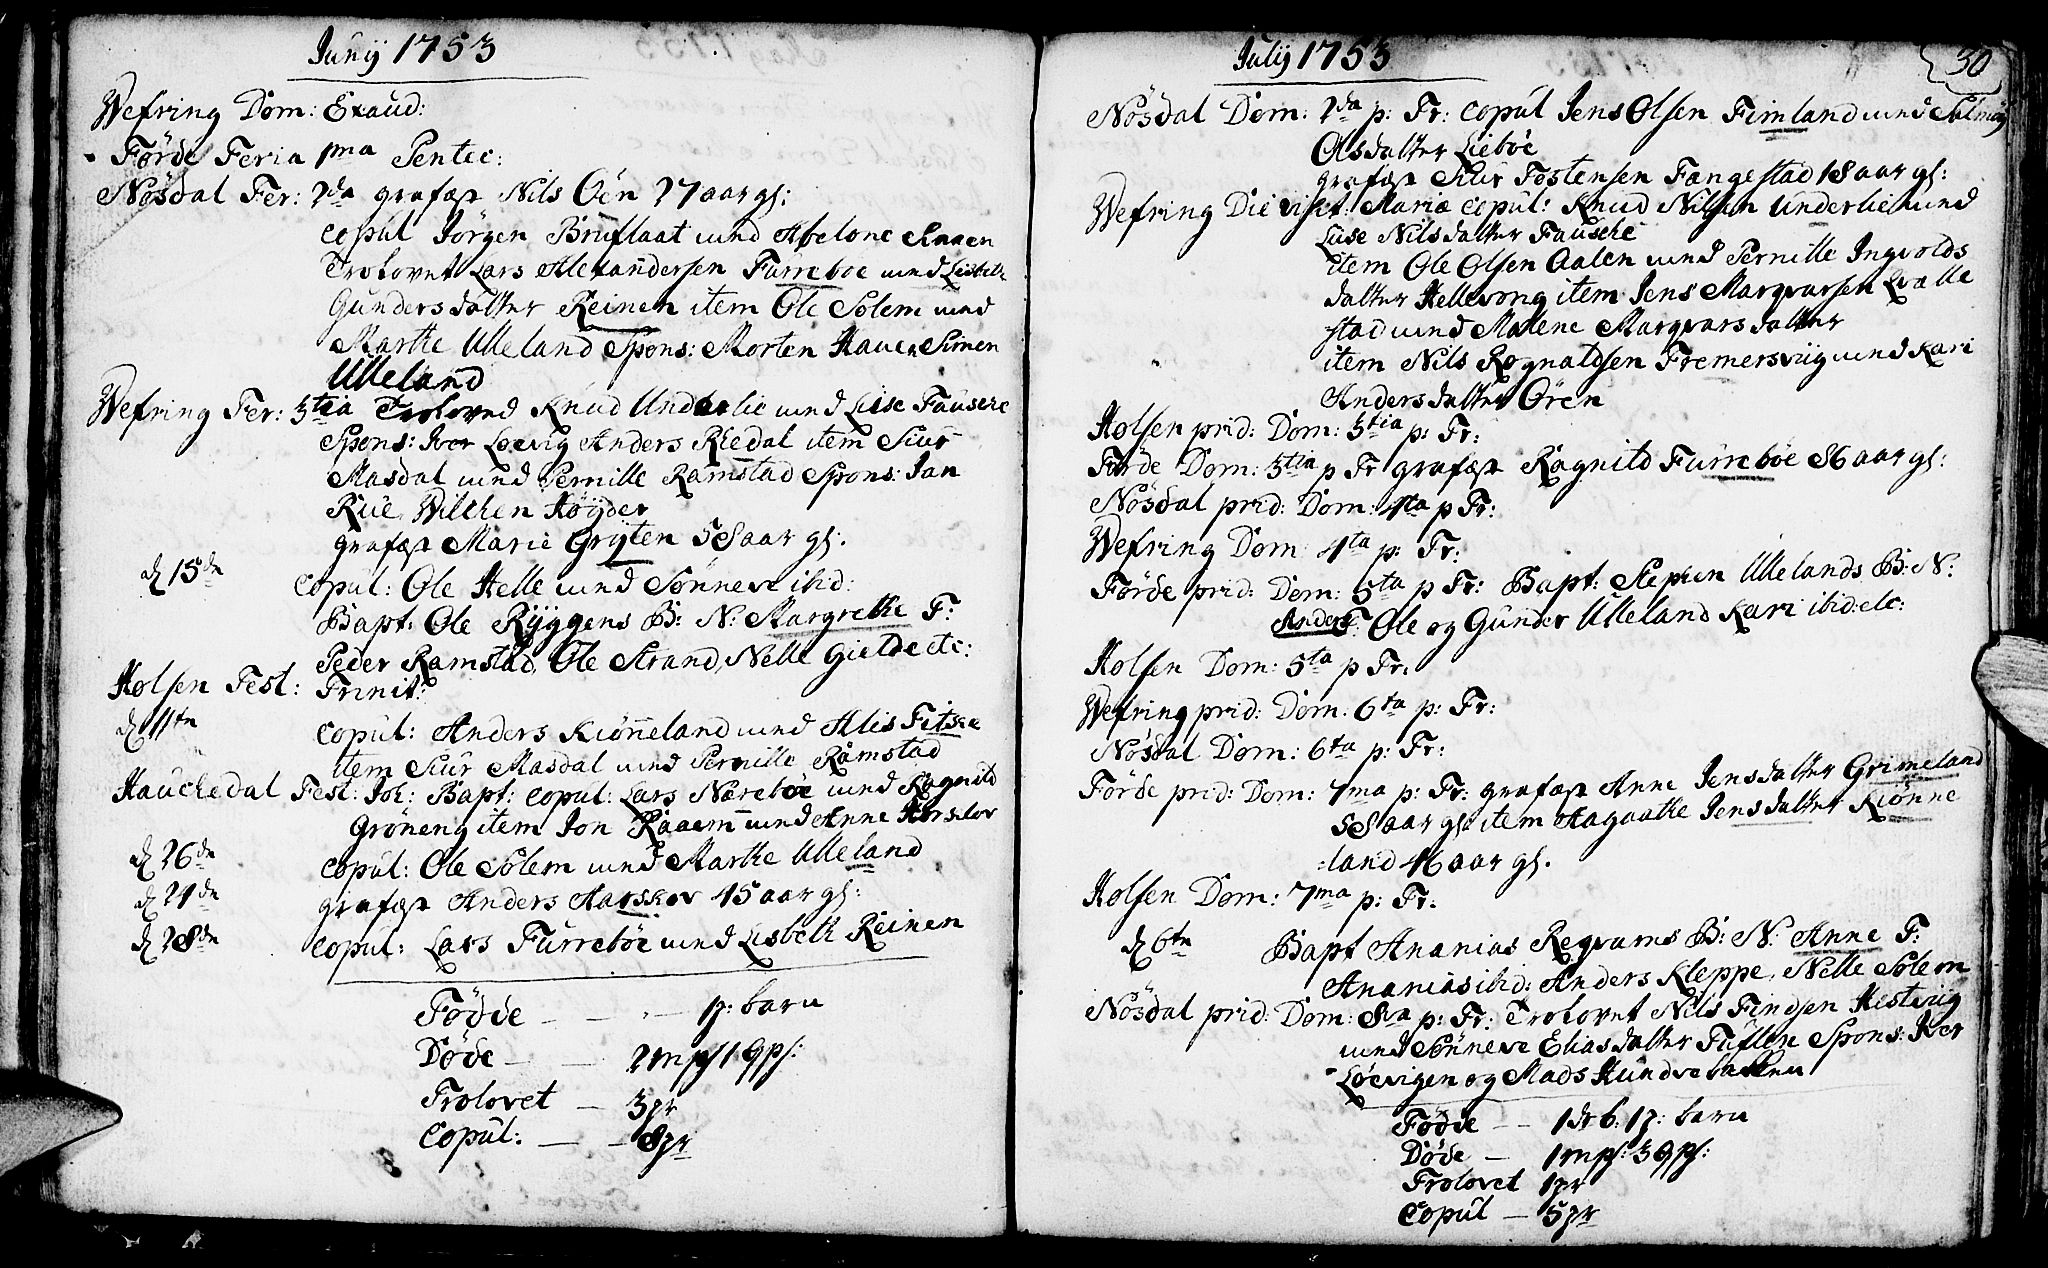 Junij 1753
Wefring Dom: Exaud:
Førde Feria 1ma Pentec:
Nøsdal Fer: 2da grafæst Nils Öen 27 aar gl:
copul Jörgen Bruflaat und Abelone
Trolovet Lars Alexandersen Furreboe und Lisbeth
Gundersdatter Reinen item Ole Solem und
Marthe Ulleland Spons: Morten Hauen Simen
Ulleland
Wefring Fer: 3tia Troloved Knud Underlie und Liise Fauske
Spons: Iver Loevig Anders Riedal item Siur
Masdal und Pernille Ramstad Spons: Jan
Rue, Willken Høyder
grafæst Marie Gryten 58 aar gl.
d 15de copul: Ole Helle und Sønneve ibid:
Bapt: Ole Ryggens B: N: Margrethe F:
Peder Ramstad, Ole Strand, Nelle Gielde etc:
Holsen Fest: Trinit:
d 11te copul: Anders Kiønneland und Alis Fitske
item Siur Masdal und Pernille Ramstad
Hauchedal Fest: Joh: Bapt: copul: Lars Nærebøe und Ragnild
Grøneng item Jon Raaem und Anne
d 26de copul: Ole Solem und Marthe Ulleland
d 24de grafæst Anders Aarskov 45 aar gl:
d 28de copul: Lars Furrebøe und Lisbeth Reinen
Födde — — — 1 p: barn
Døde — — 2 mpf 1 qpf:
Trolovet — 3 pr
Copul: — — 8 pr
July 1753
30
Nösdal Dom: 2da p: Tr: copul Jens Olsen Fimland und Salmøy
Olsdatter Liebøe
grafæst Siur Tostensen Fangestad 18 aar gl:
Wefring Die visit: Mariæ copul: Knud Nilsen Underlie und
Liise Nilsdatter Fauske
item Ole Olsen Aalen und Pernille Ingvolds
datter Hellevong item Jens Marqvarsen Qvælle
stad und Malene Marqvarsdatter
item Nils Rognaldsen Fremersviig und Kari
Andersdatter Ören
Holsen prid: Dom: 3tia p: Tr:
Førde Dom: 3tia p Tr grafæst Ragnild Furrebøe 86 aar gl:
Nösdal prid: Dom: 4ta p Tr:
Wefring Dom: 4ta p: Tr:
Förde prid: Dom: 5ta p Tr: Bapt: Stephen Ullelands B: N:
Anders F: Ole og Gunder Ulleland Kari ibid: etc:
Holsen Dom: 5ta p Tr:
Wefring prid: Dom: 6ta p: Tr:
Nösdal Dom: 6ta p: Tr:
Förde prid: Dom: 7ma p: Tr: grafæst Anne Jensdatter Grimeland
58 aar gl: item Aagaathe Jensdatter Kiønne
:land 46 aar gl.
Holsen Dom: 7ma p: Tr:
d 6te Bapt Ananias Reqvams B: N: Anne F:
Ananias ibid: Anders Kleppe, Nelle Solem
Nösdal prid: Dom: 8va p: Tr: Trolovet Nils Findsen Hestviig
und Sønneve Eliasdatter Tuften Spons: Iver
Løevigen og Mads Hundvebakken
Fødde — — 1 dr b. 1 p: barn
Døde — 1 mpf: 3 qpf:
Trolovet 1 pr
Copul — 5 pr